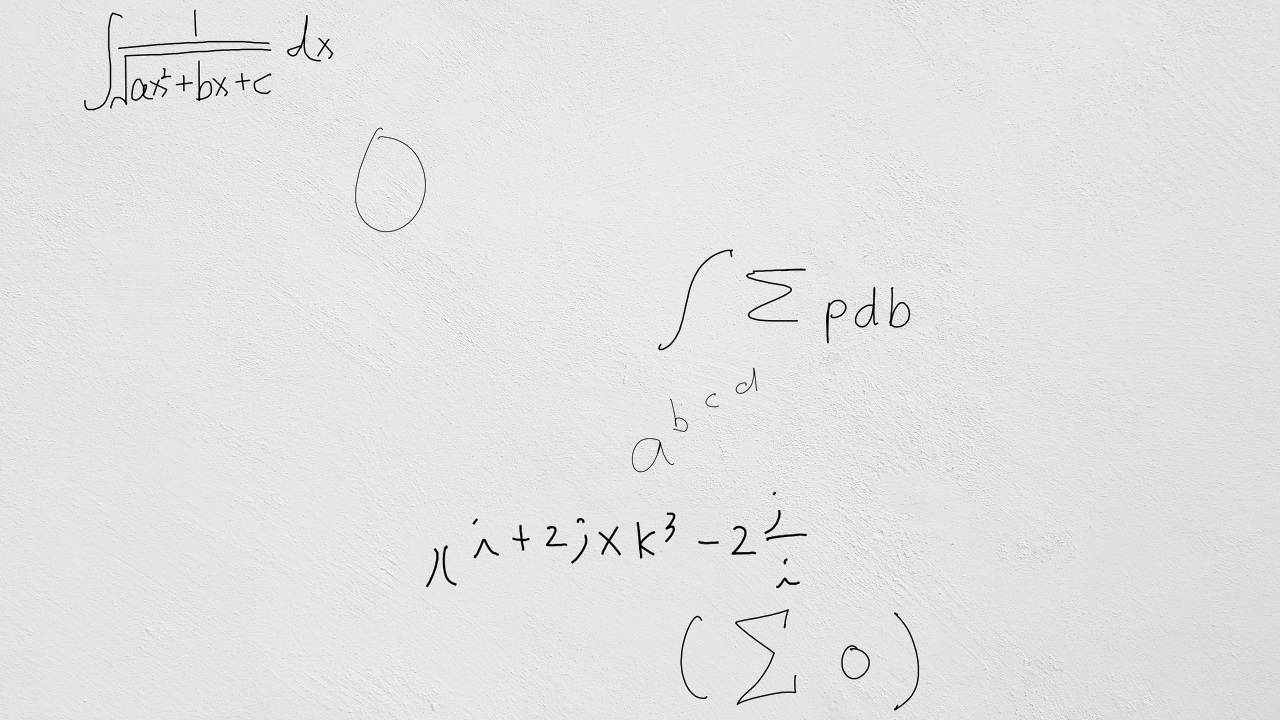 ∫ 1/√(ax²+bx+c) dx
0
∫ Σ pdb
a^b^c^d
x^(i+2j×k³−2 j/i)
(Σ 0)